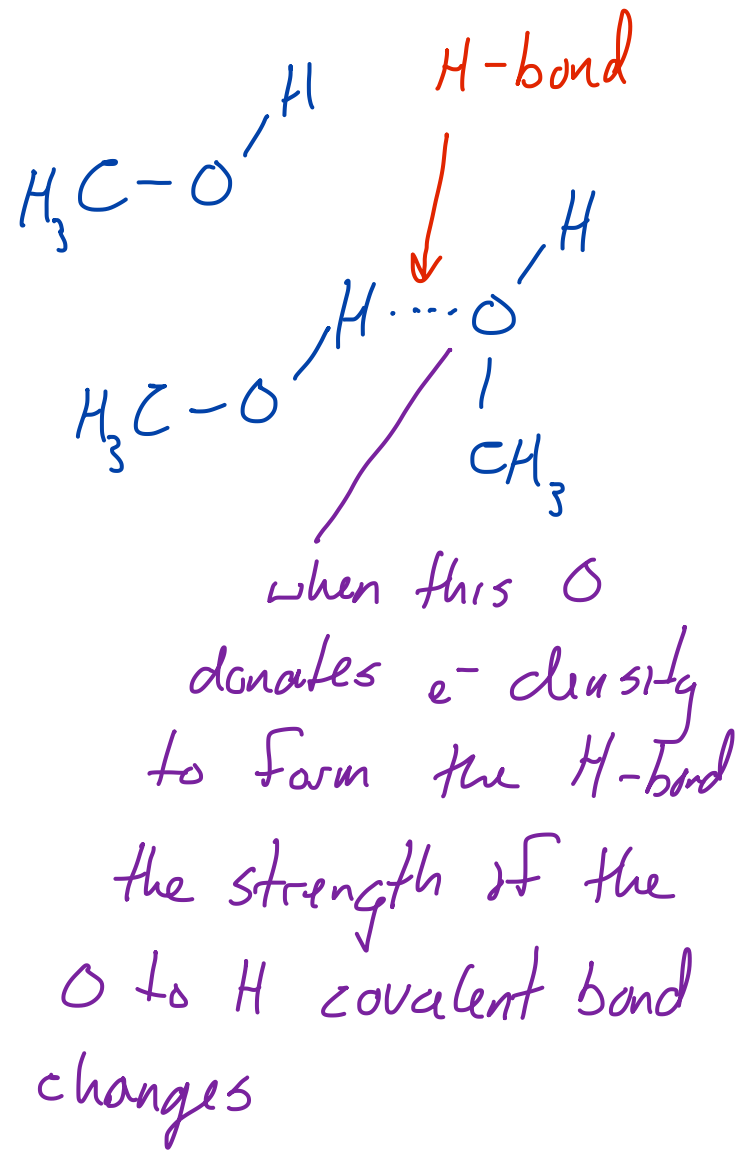 H-bond
H₃C-O-H
H
H₃C-O-H····O
CH₃
when this O
donates e⁻ density
to form the H-bond
the strength of the
O to H covalent bond
changes